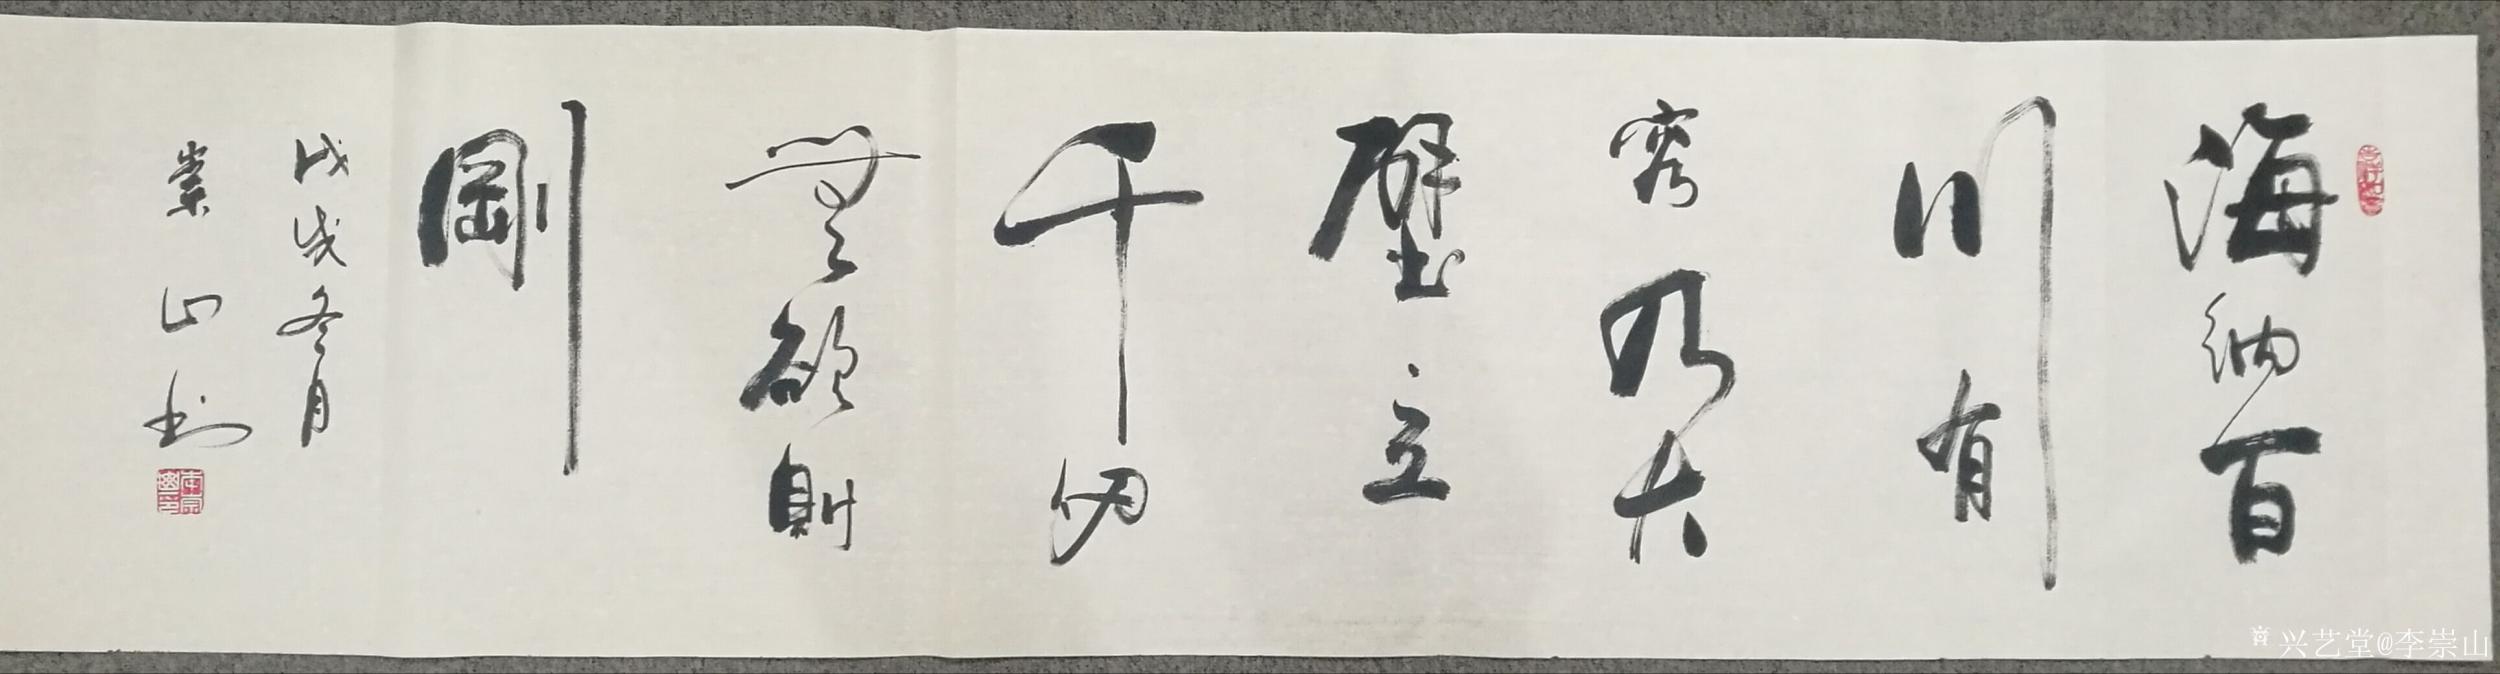 海納百
川有
容乃大
壁立
千仞
無欲則
剛
戊戌冬月
崇山书
兴艺堂@李崇山